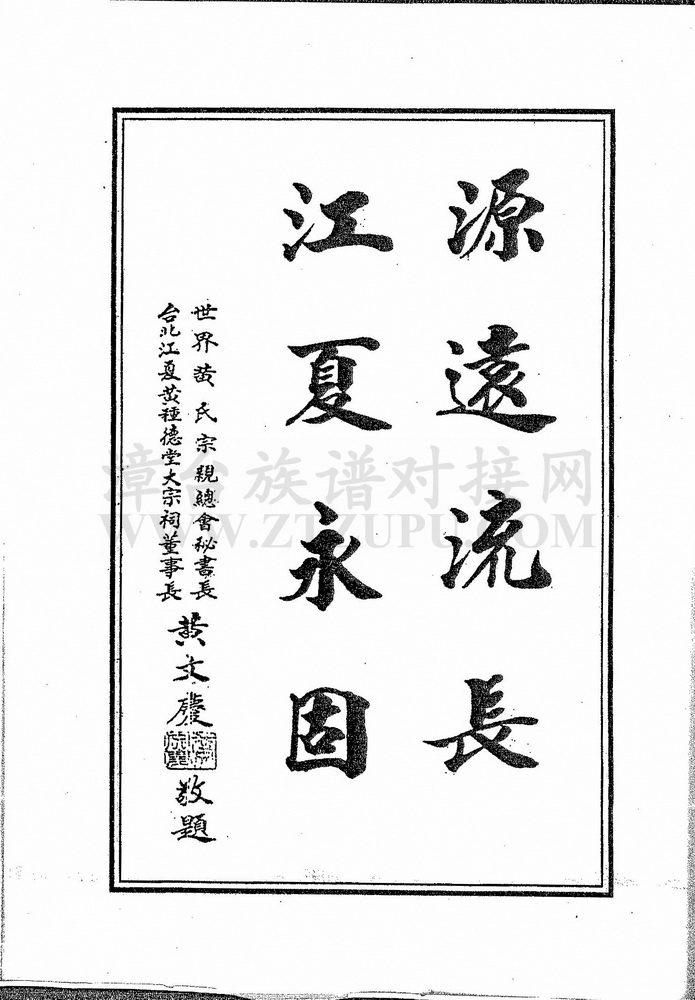 源遠流長
江夏永固
世界黄氏宗親總會秘書長
台北江夏黄種德堂大宗祠董事長
黄文慶
敬題
漳台族谱对接网
WWW.ZTZUPU.COM